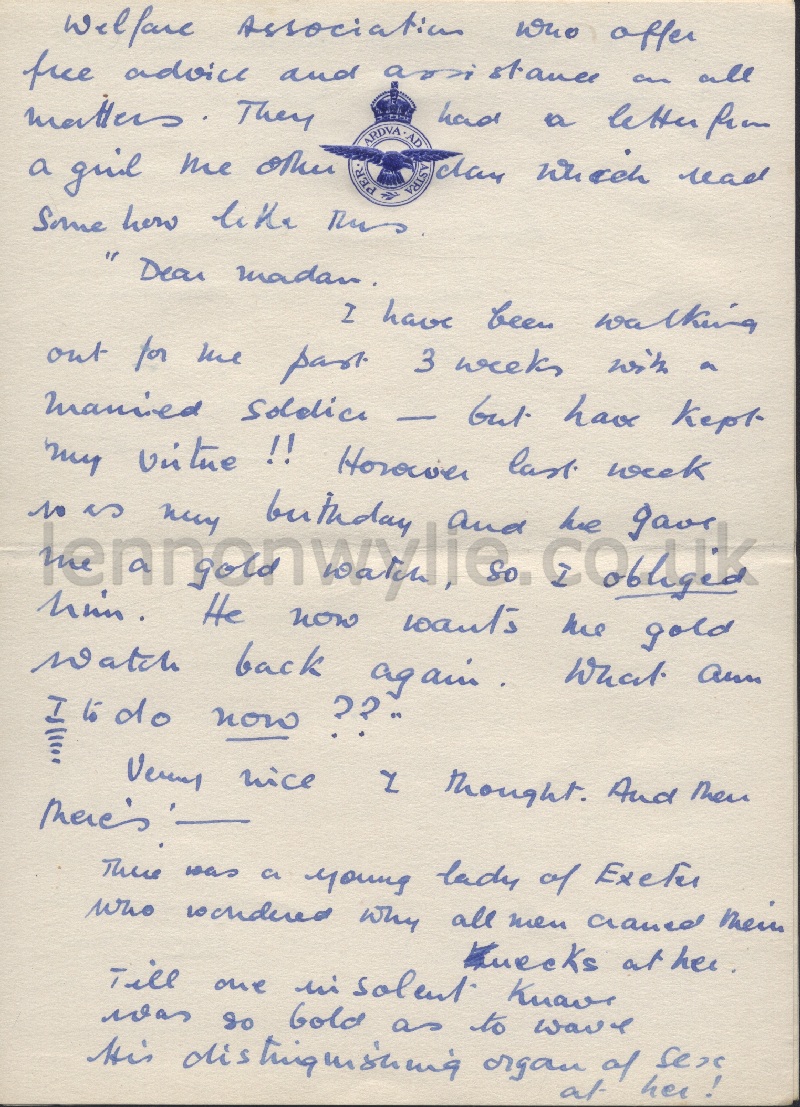 Welfare Association who offer
free advice and assistance on all
matters. They had a letter from
a girl the other day which read
Some how like this.
PER · ARDVA · AD · ASTRA
" Dear Madam.
I have been walking
out for the past 3 weeks with a
married soldier — but have kept
my virtue !! However last week
was my birthday and he gave
me a gold watch, so I obliged
lennonwylie.co.uk
him. He now wants the gold
watch back again. What am
I to do now ??"
Very nice I thought. And then
there's —
There was a young lady of Exeter
Who wondered why all men craned their
necks at her.
Till one insolent Knave
was so bold as to wave
His distinguishing organ of Sex
at her!